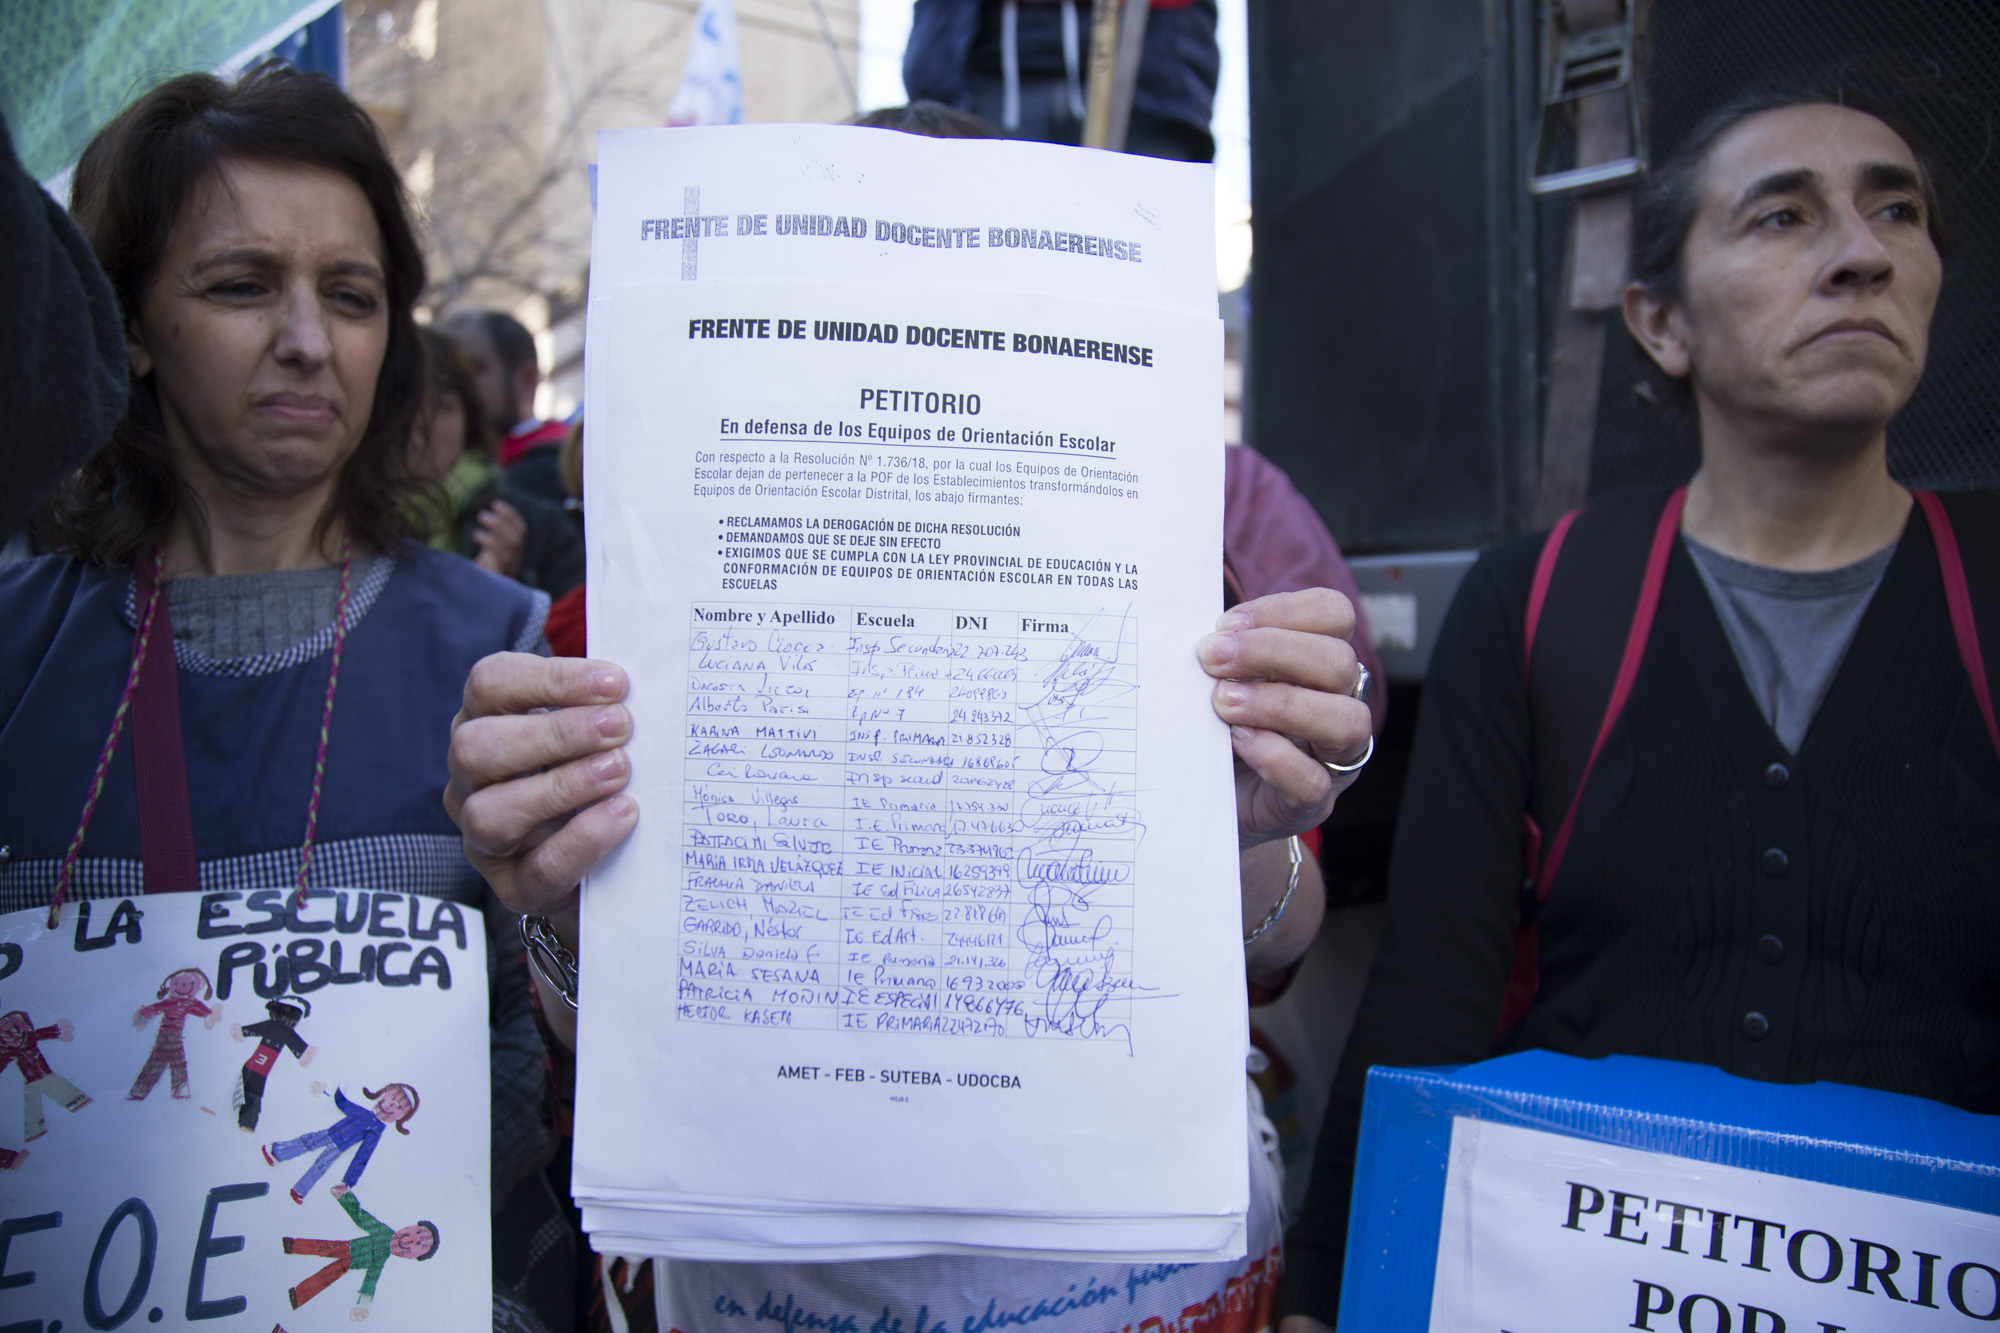 FRENTE DE UNIDAD DOCENTE BONAERENSE
FRENTE DE UNIDAD DOCENTE BONAERENSE
PETITORIO
En defensa de los Equipos de Orientación Escolar
Con respecto a la Resolución Nº 1.736/18, por la cual los Equipos de Orientación
Escolar dejan de pertenecer a la POF de los Establecimientos transformándolos en
Equipos de Orientación Escolar Distrital, los abajo firmantes:
• RECLAMAMOS LA DEROGACIÓN DE DICHA RESOLUCIÓN
• DEMANDAMOS QUE SE DEJE SIN EFECTO
• EXIGIMOS QUE SE CUMPLA CON LA LEY PROVINCIAL DE EDUCACIÓN Y LA
CONFORMACIÓN DE EQUIPOS DE ORIENTACIÓN ESCOLAR EN TODAS LAS
ESCUELAS
Nombre y Apellido Escuela DNI Firma
Gustavo Insp. 22 707.243
LUCIANA Insp.
EP Nº 184
Alberto 24.243.372
KARINA MATTIVI INSP. PRIMARIA 21852328
ZAGARI LEONARDO INSP SECUNDARIA
Insp
Mónica Villegas IE Primaria
TORO, Laura I.E. Primaria
IE Primaria
MARIA IRMA VELÁZQUEZ IE INICIAL 16259349
DANIELA IE Ed Física 26542837
ZELICH, MARIEL IE Ed
GARRIDO, Néstor IE Ed Art.
SILVA Daniela F IE Primaria 21.141.326
MARIA SESANA IE Primaria
PATRICIA IE ESPECIAL 14866476
HECTOR IE PRIMARIA 22472170
AMET - FEB - SUTEBA - UDOCBA
HOJA 2
LA ESCUELA
PÚBLICA
E.O.E
en defensa de la educación
PETITORIO
POR